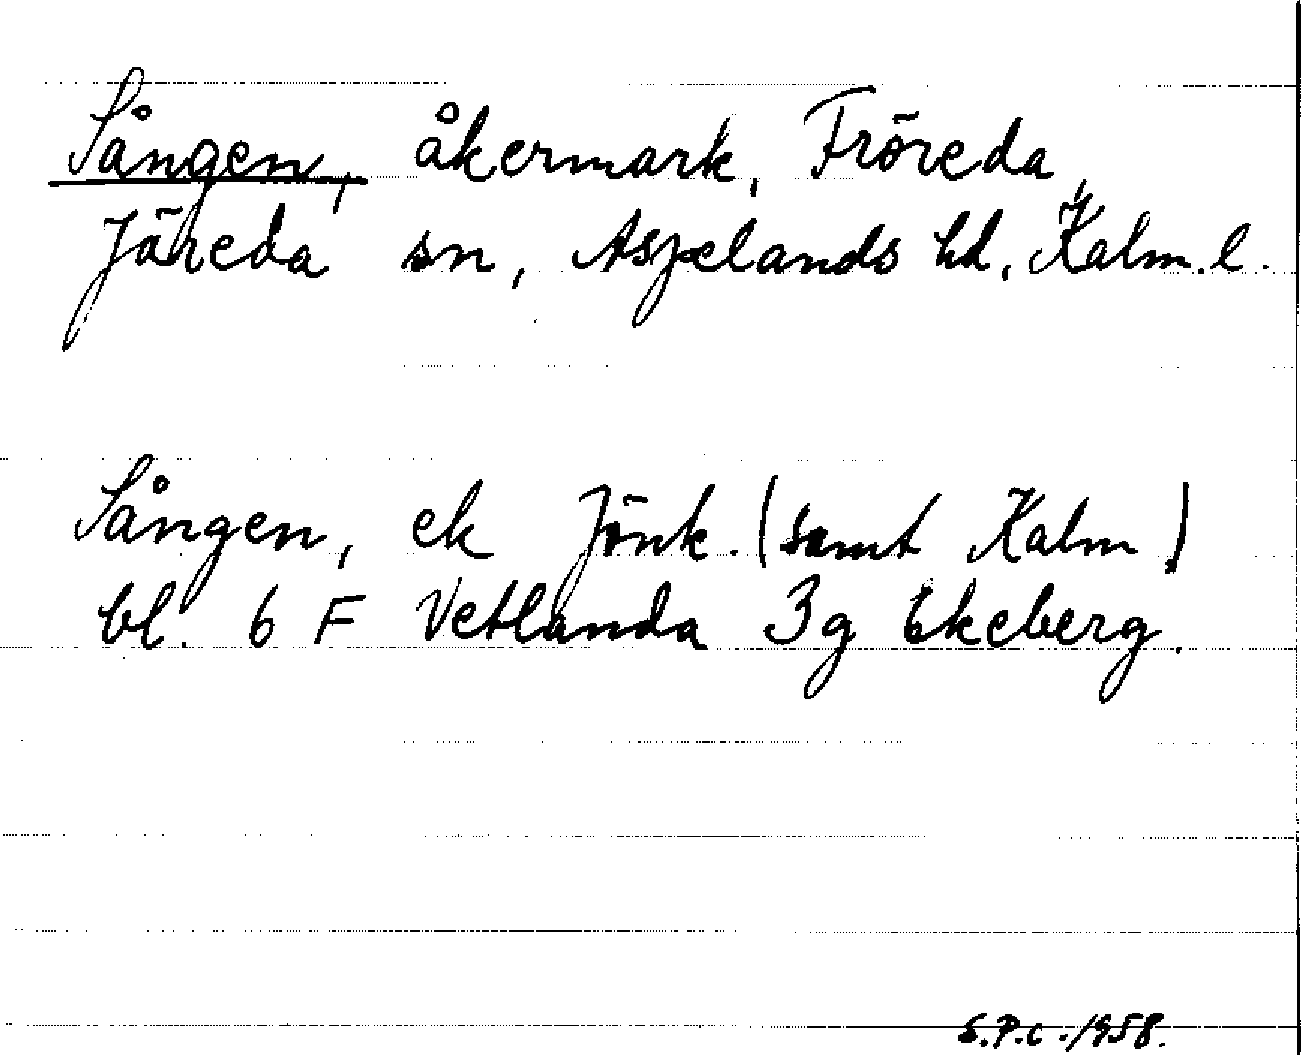 Sången, åkermark, Fröreda,
Järeda sn, Aspelands hd, Kalm. l.
Sången, ek Jönk. (samt Kalm)
bl. 6 F Vetlanda 3g Ekeberg.
S.P.C. /958.